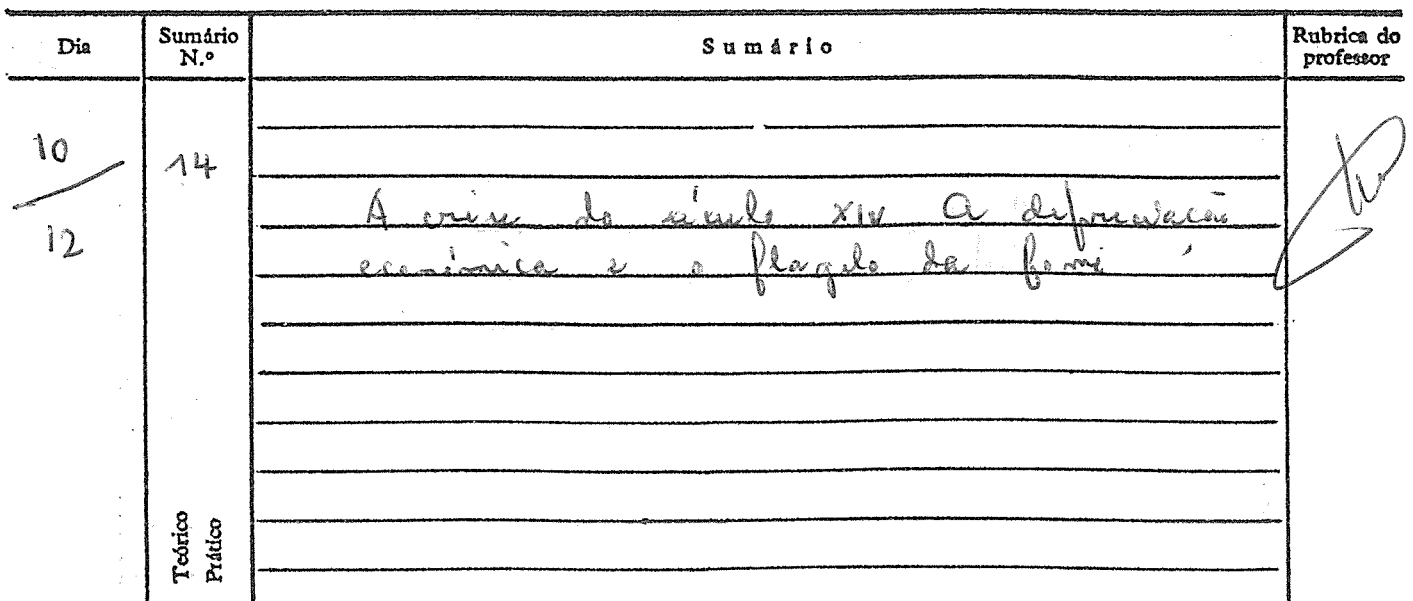 Dia Sumário N.º Sumário Rubrica do professor
10/12 14
A crise do século XIV A depreciação
económica e o flagelo da fome
Teórico
Prático